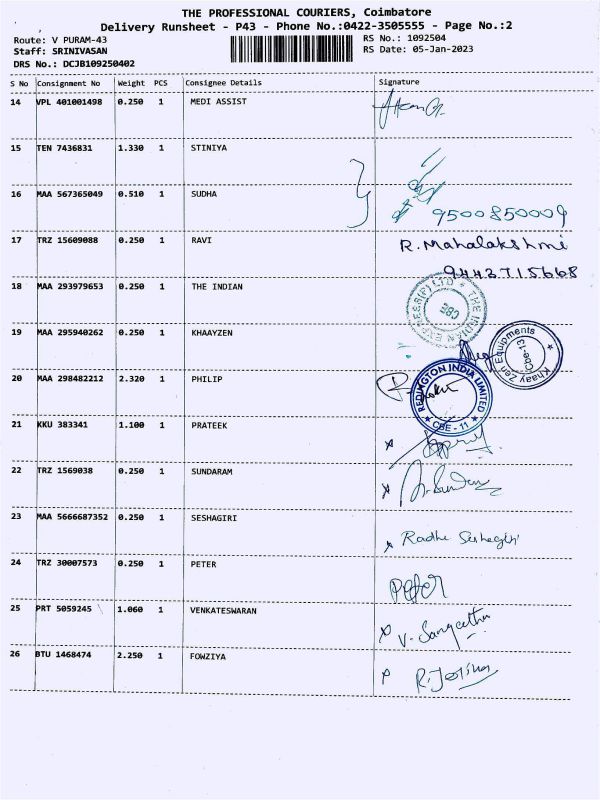 THE PROFESSIONAL COURIERS, Coimbatore
Delivery Runsheet - P43 - Phone No.:0422-3505555 - Page No.:2
Route: V PURAM-43
RS No.: 1092504
Staff: SRINIVASAN
RS Date: 05-Jan-2023
DRS No.: DCJB109250402
S No Consignment No Weight PCS Consignee Details Signature
14 VPL 401001498 0.250 1 MEDI ASSIST
15 TEN 7436831 1.330 1 STINIYA
16 MAA 567365049 0.510 1 SUDHA
9500850009
17 TRZ 15609088 0.250 1 RAVI R. Mahalakshmi
9443715668
18 MAA 293979653 0.250 1 THE INDIAN
THE INDIAN EXPRESS(P) LTD
CBE
19 MAA 295940262 0.250 1 KHAAYZEN
Khaay Zen Equipments
Cbe-13
20 MAA 298482212 2.320 1 PHILIP
REDINGTON INDIA LIMITED
CBE - 11
21 KKU 383341 1.100 1 PRATEEK
22 TRZ 1569038 0.250 1 SUNDARAM
23 MAA 5666687352 0.250 1 SESHAGIRI Radhe Seshagiri
24 TRZ 30007573 0.250 1 PETER Peter
25 PRT 5059245 1.060 1 VENKATESWARAN V. Sangeetha
26 BTU 1468474 2.250 1 FOWZIYA